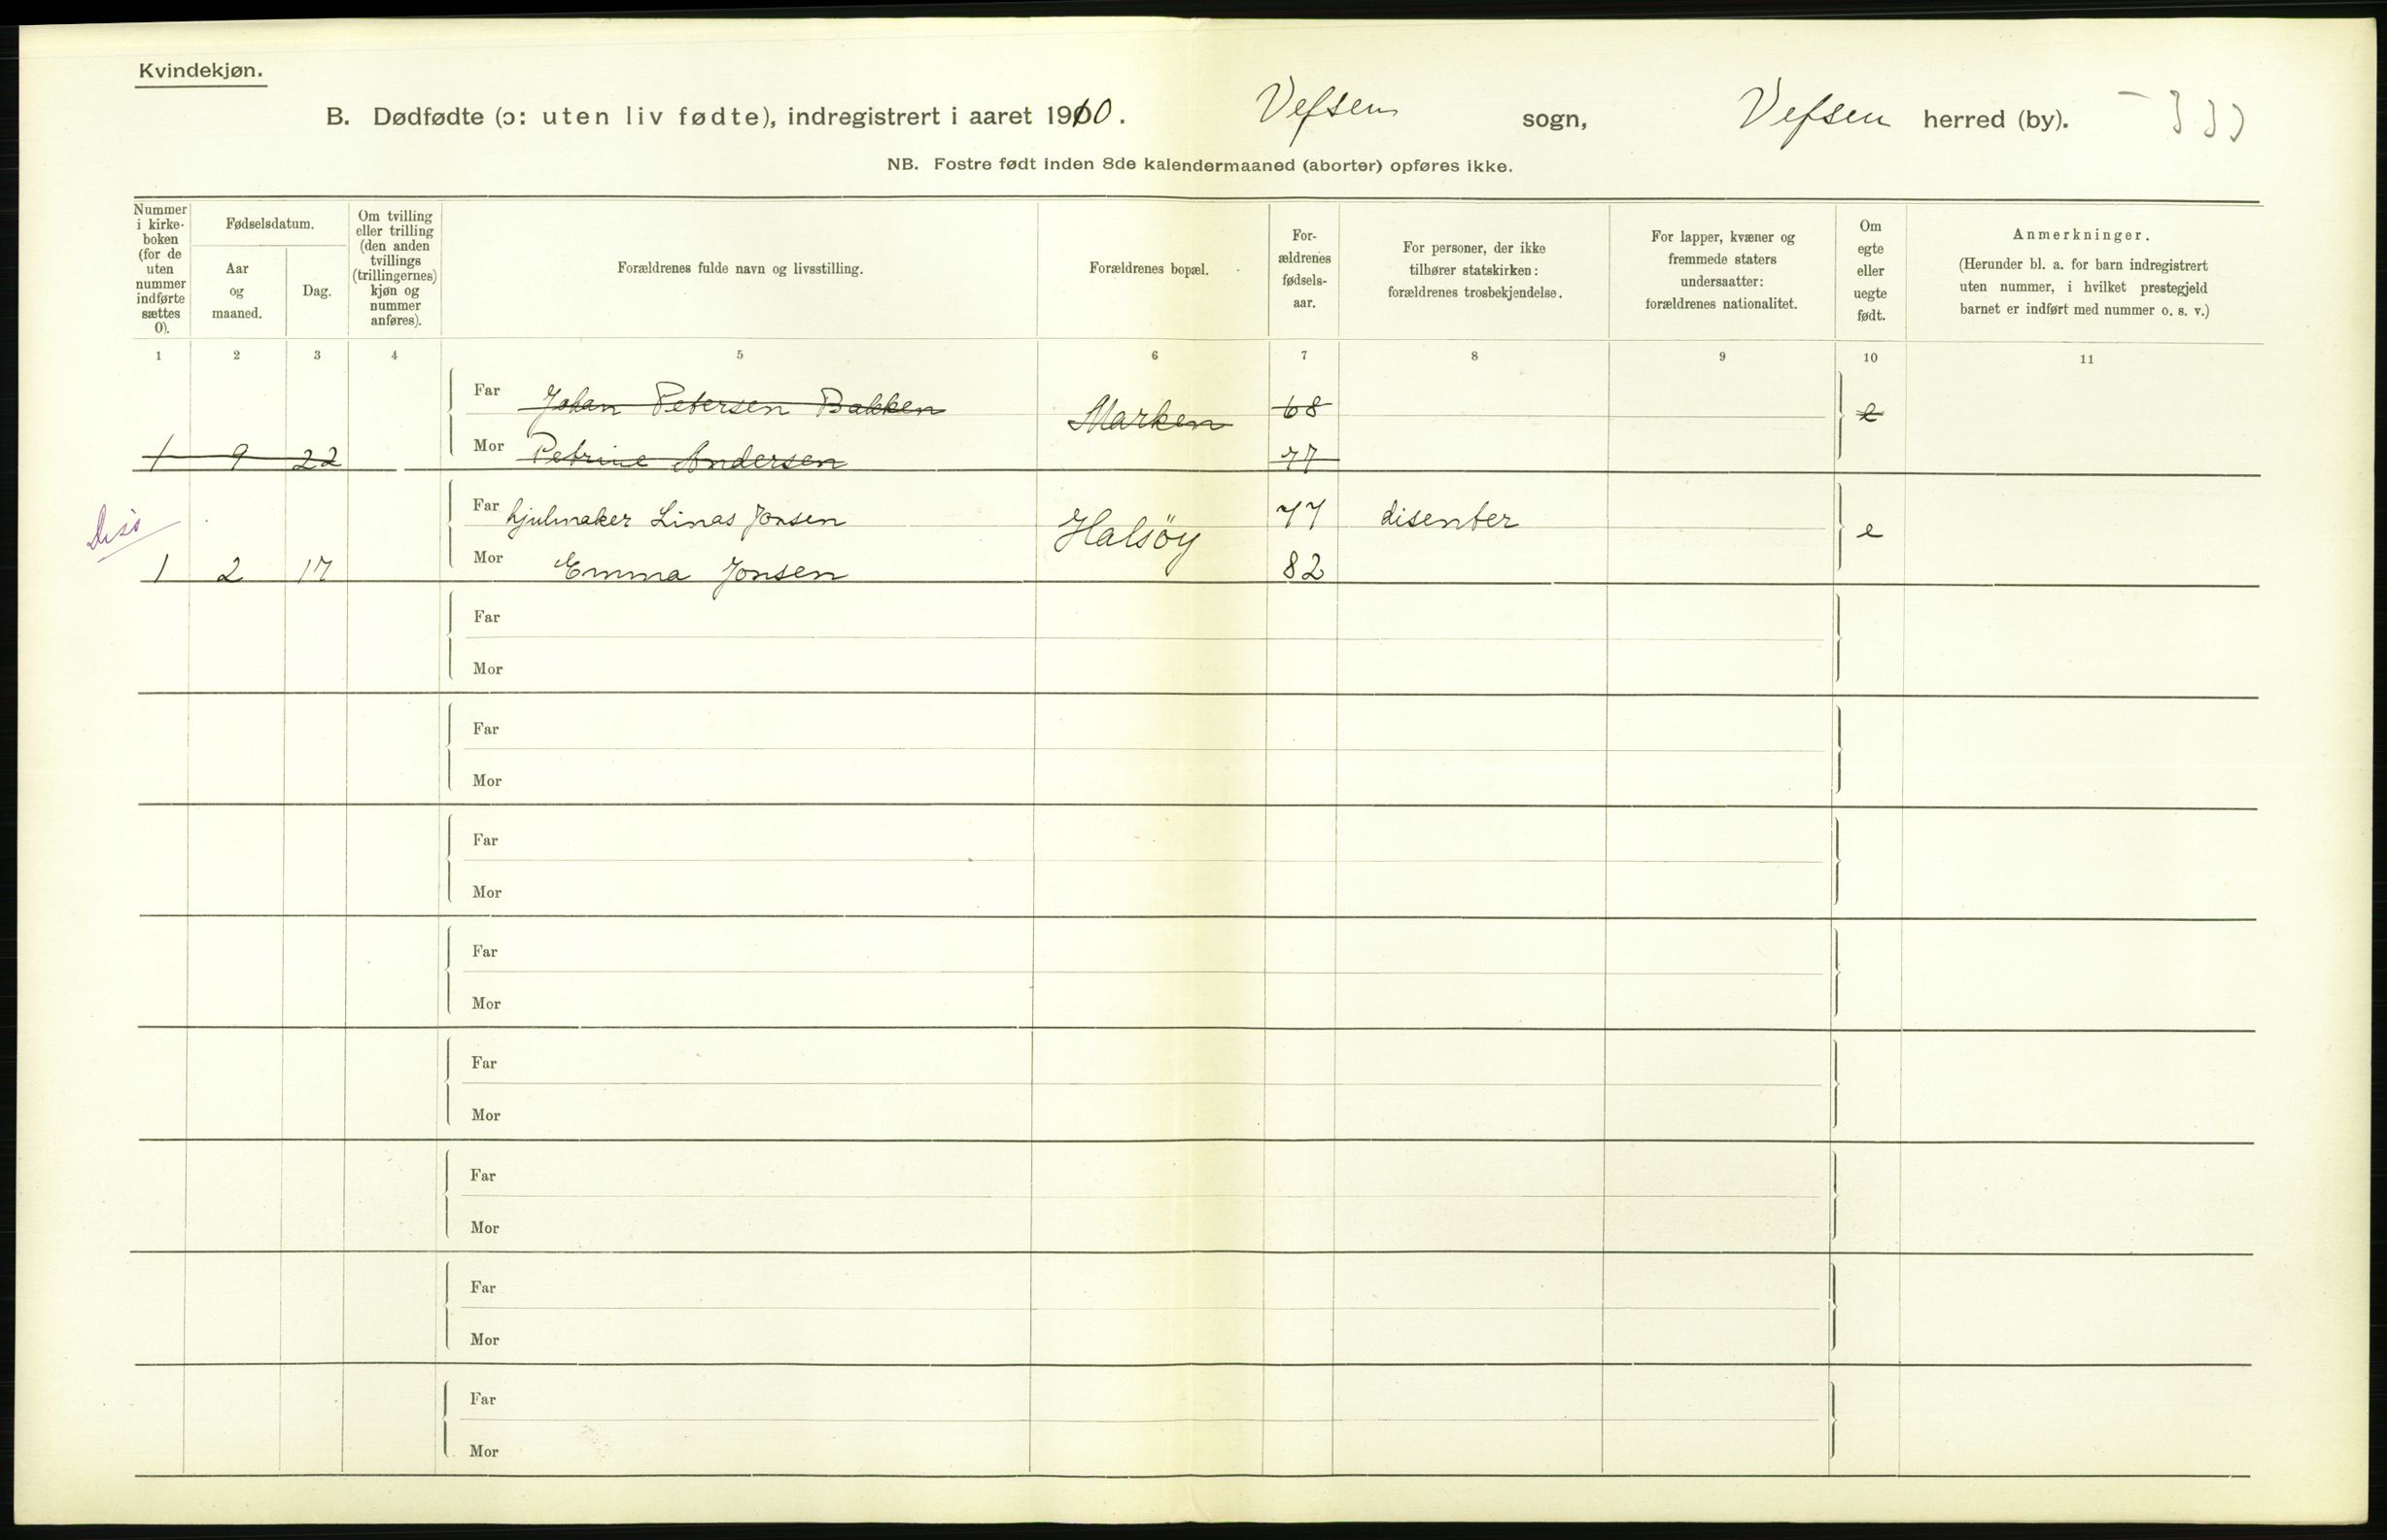 Kvindekjøn.
B. Dødfødte (ɔ: uten liv fødte), indregistrert i aaret 1910. Vefsen sogn, Vefsen herred (by).
NB. Fostre født inden 8de kalendermaaned (aborter) opføres ikke.
Nummer i kirke-boken (for de uten nummer indførte sættes 0).
Fødselsdatum.
Aar og maaned.
Dag.
Om tvilling eller trilling (den anden tvillings (trillingernes) kjøn og nummer anføres).
Forældrenes fulde navn og livsstilling.
Forældrenes bopæl.
For-ældrenes fødsels-aar.
For personer, der ikke tilhører statskirken: forældrenes trosbekjendelse.
For lapper, kvæner og fremmede staters undersaatter: forældrenes nationalitet.
Om egte eller uegte født.
Anmerkninger.
(Herunder bl. a. for barn indregistrert uten nummer, i hvilket prestegjeld barnet er indført med nummer o. s. v.)
1 2 3 4 5 6 7 8 9 10 11
Far Johan Petersen Bakken Marken 68 e
1 9 22 Mor Petrine Andersen 77
Diss
Far hjulmaker Linas Jonsen Halsøy 77 disenter e
1 2 17 Mor Emma Jonsen 82
Far
Mor
Far
Mor
Far
Mor
Far
Mor
Far
Mor
Far
Mor
Far
Mor
Far
Mor